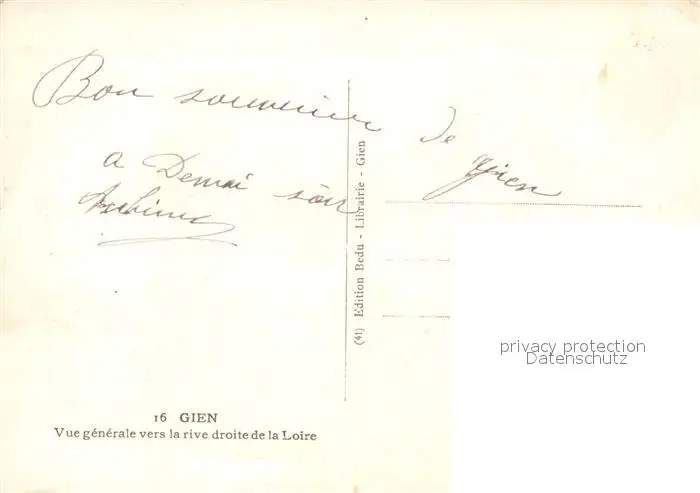 Bon souvenir de
Gien
a Demai soir
(41) Edition Bedu - Librairie - Gien
privacy protection
Datenschutz
16 GIEN
Vue générale vers la rive droite de la Loire